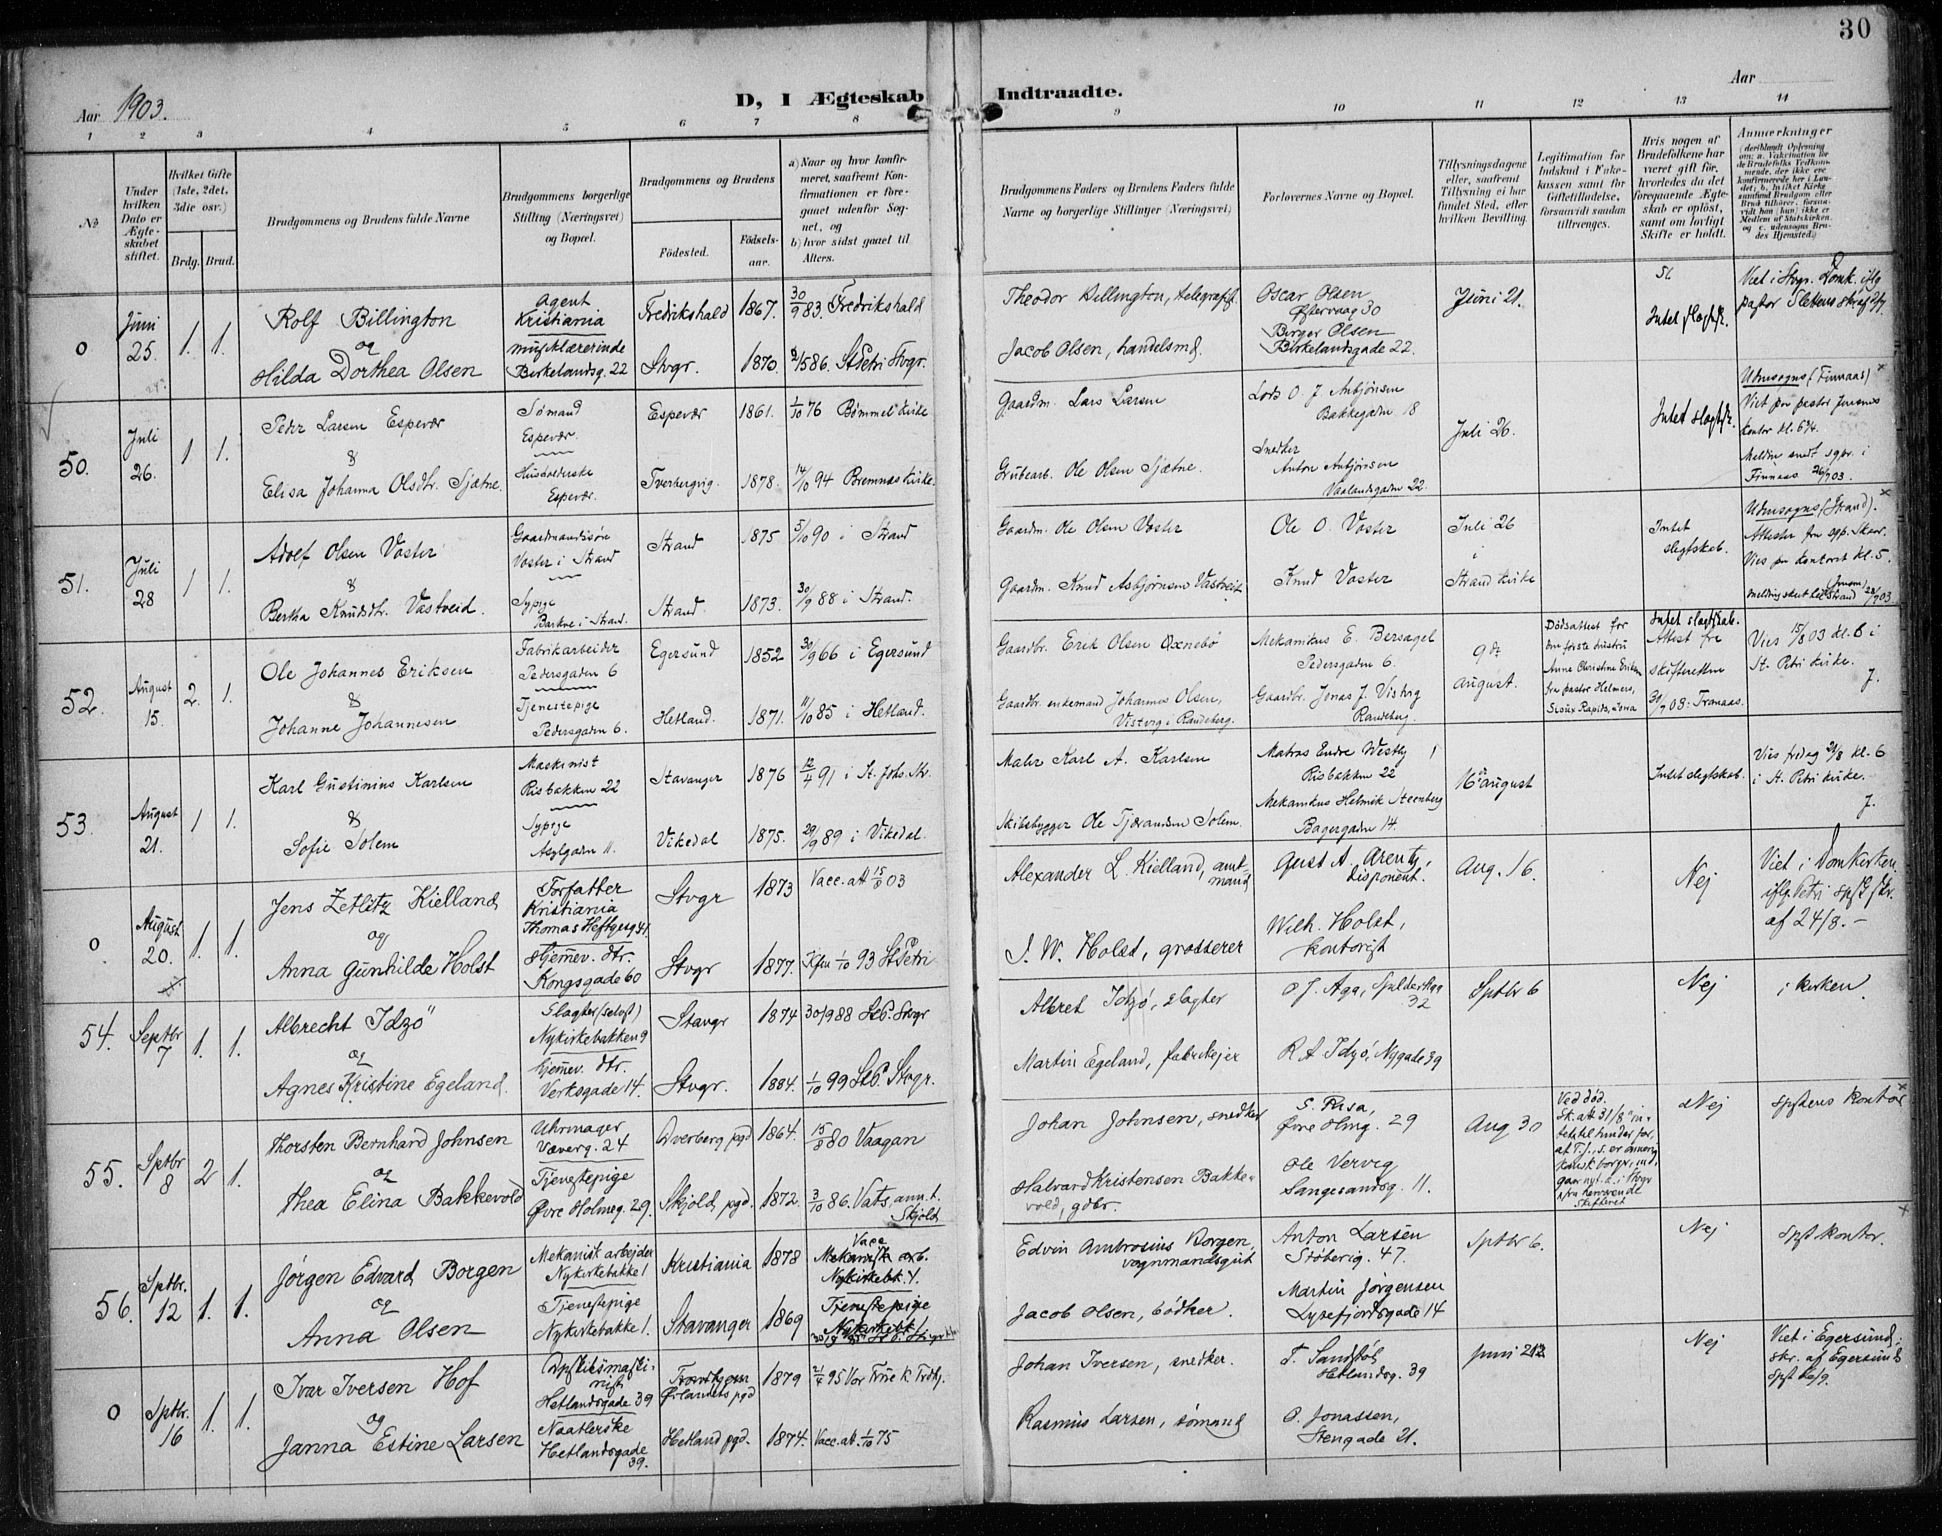 30
Aar 1903.
D, I Ægteskab Indtraadte.
Aar
1 2 3 4 5 6 7 8 9 10 11 12 13 14
No
Under hvilken Dato er Ægteskabet stiftet.
Hvilket Gifte (1ste, 2det, 3die osv.)
Brdg. Brud.
Brudgommens og Brudens fulde Navne
Brudgommens borgerlige Stilling (Næringsvei) og Bopæl.
Brudgommens og Brudens
Fødested.
Fødsels-aar.
a) Naar og hvor konfirmeret, saafremt Konfirmationen er foregaaet udenfor Sognet, og
b) hvor sidst gaaet til Alters.
Brudgommens Faders og Brudens Faders fulde Navne og borgerlige Stillinger (Næringsvei)
Forlovernes Navne og Bopæl.
Tillysningsdagene eller, saafremt Tillysning ei har fundet Sted, efter hvilken Bevilling.
Legitimation for Indskud i Enkekassen samt for Giftetilladelse, forsaavidt saadan tiltrænges.
Hvis nogen af Brudefolkene har været gift før, hvorledes da det foregaaende Ægteskab er opløst, samt om lovligt Skifte er holdt.
Anmerkninger
0 Juni 25. 1. 1.
Rolf Billington
og
Hilda Dorthea Olsen
Agent
Kristiania
musiklærerinde
Birkelandsg. 22
Fredrikshald 1867. 30/9 83. Fredrikshald
Stvgr. 1870. St Petri Stvgr.
Theodor Billington, telegrafist.
Jacob Olsen, handelsmd.
Oscar Olsen
Østervaag 30
Birger Olsen
Birkelandsgade 22.
Juni 21.
Intet slægtsk.
50. Juli 26. 1 1.
Peder Larsen Espevær
&
Elisa Johanna Olsdtr. Sjætne.
Sømand
Espevær.
Husholderske
Espevær.
Espevær 1861. 1/10 76 Bømmel Kirke
Tverbergvig. 1878. 14/10 94 Bremnes Kirke.
Gaardm. Lars Larsen
Grubearb. Ole Olsen Sjætne.
Lods O. J. Anbjørnsen
Bakkegaden 18
Snedker
Anton Anbjørnsen
Vaalandsgaden 22.
Juli 26.
Intet slægtsk.
Udensogns (Finnaas) x
Viet paa pastor Jensens
kontor kl. 6 3/4.
Melding sendt sgpr. i
Finnaas 26/7 03.
51. Juli 28 1 1.
Adolf Olsen Voster
&
Bertha Knudsdtr. Vastveid.
Gaardmandssøn
Voster i Strand
Sypige
Barkve i Strand.
Strand 1875 5/10 90 i Strand
Strand. 1873. 30/9 88 i Strand.
Gaardm. Ole Olsen Voster
Gaardm. Knud Asbjørnsen Vastveit
Ole O. Voster
Knud Voster
Juli 26
i
Strand kirke
Intet
slegtskab.
Udensogns (Strand). x
Attester fra sgp. Skaar.
Vies paa kontoret kl. 5.
52. August 15. 2. 1.
Ole Johannes Eriksen
&
Johanne Johannesen
Fabrikarbeider
Pedersgaden 6
Tjenestepige
Pedersgaden 6.
Egersund 1852 30/9 66 i Egersund
Hetland. 1871. 11/10 85 i Hetland.
Gaardbr. Erik Olsen Oxnebø
Gaardbr. enkemand Johannes Olsen,
Vistvig i Randeberg.
Mekanikus E. Bersagel
Pedersgaden 6.
Gaardbr. Jonas J. Vistvig
Randeberg.
9de
august.
Dødsattest for
hans første hustru
Anne Christine Eriksen
fra pastor Helmers,
Sioux Rapids, Iowa
Intet slægtskab.
Attest fra
skifteretten
Vies 15/8 03 kl. 6 i
St. Petri kirke.
J.
53. August 21. 1 1.
Karl Gustinius Karlsen
&
Sofie Solem
Maskinist
Risbakken 22
Sypige
Asylgaden 11.
Stavanger 1876 12/4 91 i St. Johs. Stv.
Vikedal 1875. 29/9 89 i Vikedal.
Maler Karl A. Karlsen
Skibsbygger Ole Tjerandsen Solem.
Matros Endre Westby
Risbakken 22
Mekanikus Helmik Steenberg
Bagergaden 14.
16de august
Intet slegtskab.
Vies fredag 21/8 kl. 6
i St. Petri kirke.
J.
0 August 20. 1. 1.
Jens Zetlitz Kielland
og
Anna Gunhilde Holst
Forfatter
Kristiania
Thomas Heftyesg 41.
Hjemev. dtr.
Kongsgade 60
Stvgr 1873 Vacc. att 15/8 03
Stvgr 1877. Kfm 1/10 93 St Petri
Alexander L. Kielland, amtmand
J. W. Holst, grosserer
Gust A. Arentz,
disponent.
Wilh. Holst,
kontorist
Aug. 16.
Nej
Viet i Domkirken
iflg. Petri spst skr.
af 24/8. -
54. Septbr 7 1. 1.
Albrecht Idzø
og
Agnes Kristine Egeland.
Slagter (selvst)
Nykirkebakken 9
Hjemev. dtr.
Verksgade 14.
Stavgr 1874 30/9 88 Stb. Stvgr
Stvgr. 1884. 1/10 99 Stb. Stvgr.
Albret Idzø, slagter
Martin Egeland, fabrikejer
O J. Aga, Spilderhag
32
R A Idzø, Nygade 39
Sptbr 6
Nej
i kirken.
55. Sptbr 8 2 1.
Thorsten Bernhard Johnsen
og
Thea Elina Bakkevold
Uhrmager
Væverg. 24
Tjenestepige
Øvre Holmeg. 29.
Dverberg pgd 1864. 15/8 80 Vaagan
Skjold pgd. 1872. 3/10 86. Vats, ann. t.
Skjold
Johan Johnsen, snedker
Halvard Kristensen Bakkevold, gdbr.
S. Risa,
Øvre Hlmg. 29
Ole Vervig
Langesandsg. 11.
Aug 30
Ved død.
Nej
spstens kontor x
56. Sptbr. 12 1. 1.
Jørgen Edvard Borgen
og
Anna Olsen
Mekanisk arbejder
Nykirkebakke 1
Tjenestepige
Nykirkebakke 1.
Kristiania 1878 Vacc
Mekanisk arb.
Nykirkebk. 1.
Stavanger 1869 Tjenestepige
Nykirkebk 1
Edvin Ambrosius Borgen,
vognmandsgut
Jacob Olsen, bødker.
Anton Larsen
Støberig. 47.
Martin Jørgensen
Lysefjordsgade 14
Sptbr 6.
Nej
Spst kontor. x
0 Sptbr. 16 1. 1.
Ivar Iversen Hof
og
Janna Estine Larsen
Hetlandsgade 39
Naatlerske
Hetlandsgade
39.
Trondhjem
Ørlandets pgd 1879 2/4 95 Vor Frue K Trdhj.
Hetland pgd. 1874. Vacc. att. 1/10 75
Johan Iversen, snedker.
Rasmus Larsen, sømand
T. Sandstøl
Hetlandsg. 39
O. Jonassen,
Stengade 21.
juni 21
Nej
Viet i Egersund;
skr. af Egersund